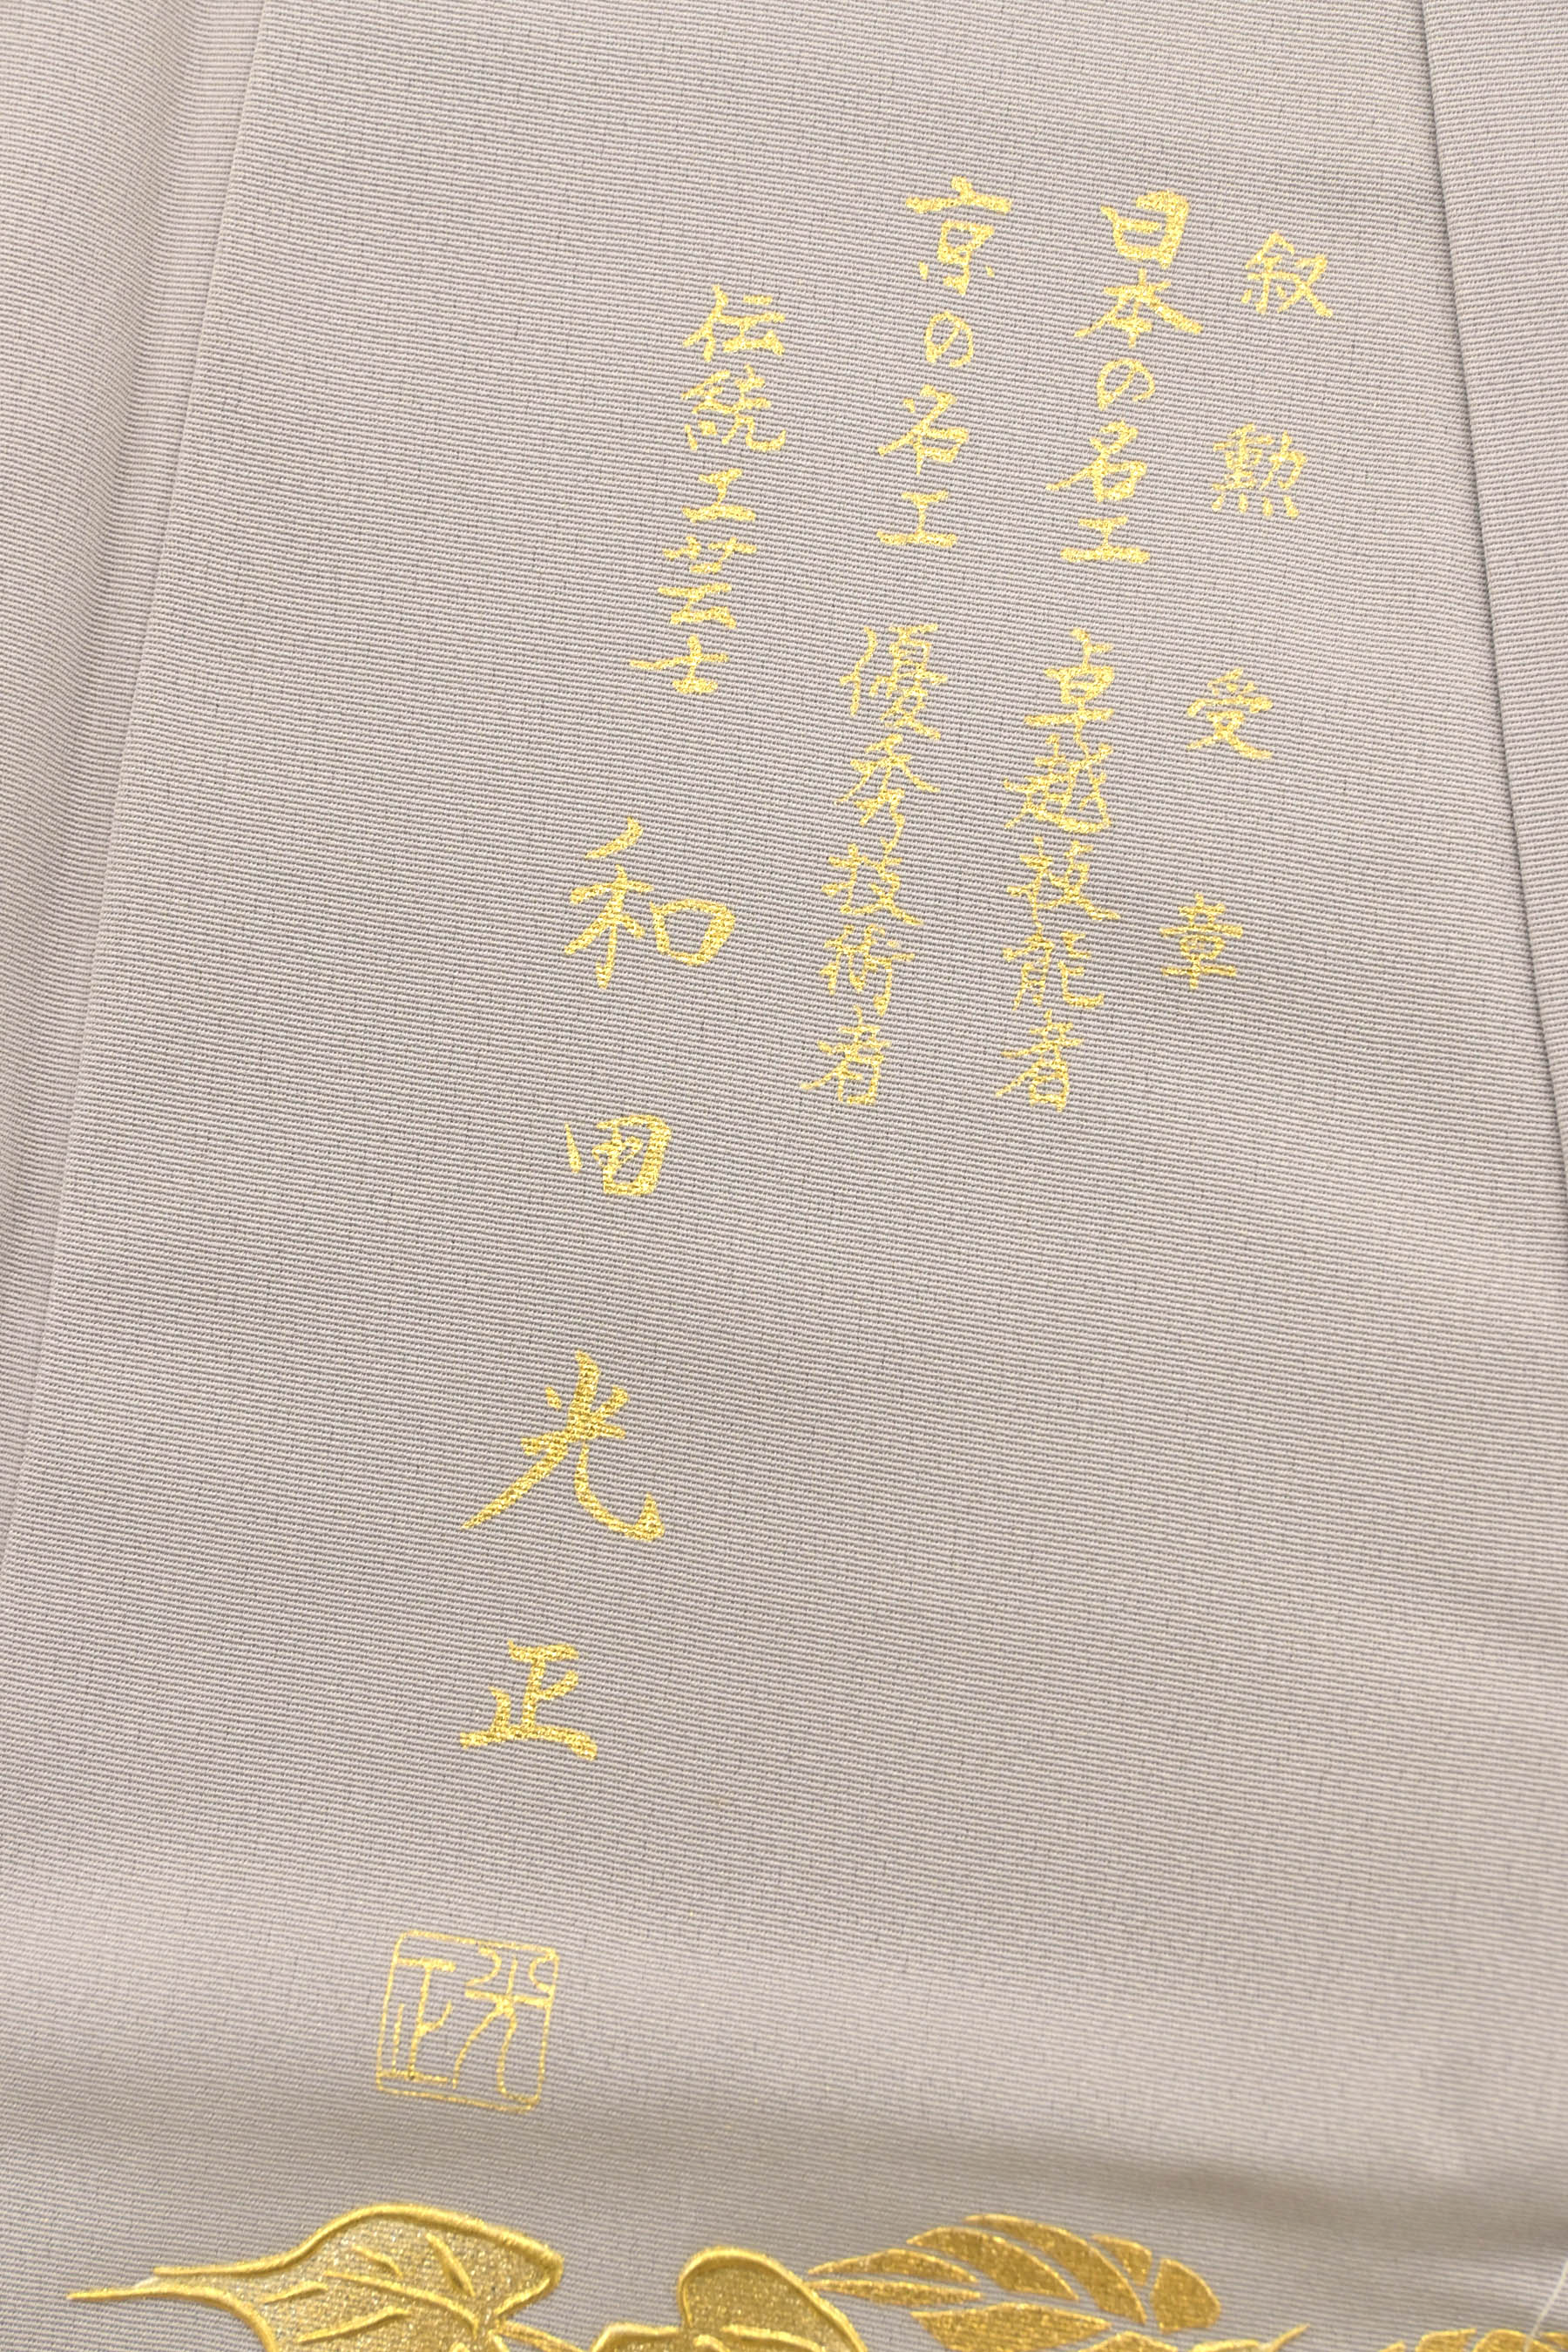 叙勲受章
日本の名工 卓越技能者
京の名工 優秀技術者
伝統工芸士 和田光正
光正